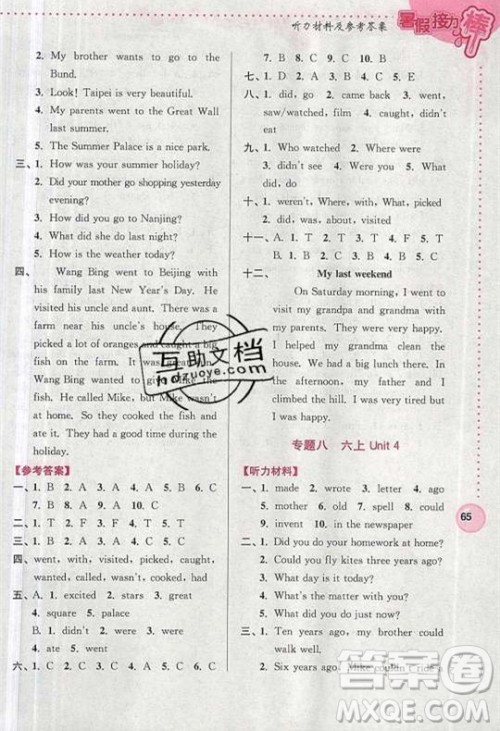 听力材料及参考答案
暑假接力棒
2. My brother wants to go to the
Bund.
3. Look! Taipei is very beautiful.
4. My parents went to the Great Wall
last summer.
5. The Summer Palace is a nice park.
三、1. How was your summer holiday?
2. Did your mother go shopping yesterday
evening?
3. How did you go to Nanjing?
4. What did she do last night?
5. How is the weather today?
四、 Wang Bing went to Beijing with his
family last New Year's Day. He
visited his uncle and aunt. There was a
farm near his uncle's house. They
picked a lot of oranges and caught a big
fish on the farm. It was great fun.
Wang Bing and Mike
cooked the fish. Mike, but
He liked Mike, but he ate the fish and
ate it up. They were tired but happy.
They had a good time during the
holiday.
【参考答案】
一、1. B 2. A 3. A 4. C 5. B
6. B 7. C 8. A 9. A 10. A
二、1. C 2. B 3. A 4. C 5. A
三、1. B 2. C 3. A 4. B 5. A
四、went, with, visited, picked, caught,
was, cooked, happy, had, holiday
五、A. 1. excited 2. stars 3. great
4. square 5. palace
B. 1. didn't 2. were 3. did
4. went 5. was
六、1. C 2. C 3. A 4. B 5. A 6. C
7. B 8. C 9. A 10. B
七、1. D 2. E 3. A 4. C 5. B
八、1. went, caught 2. didn't, go 3. went,
saw/watched, film 4. caught, didn't
eat 5. was, great
九、1. Who watched 2. Where were
3. didn't see 4. did, do 5. It was
十、1. weren't, Where, with, What, with
2. did, was, about, visited
十一、A. 1. T 2. F 3. T 4. T 5. F
B. 1. C 2. A 3. B 4. A 5. A
十二、 My last weekend
On Saturday morning, I went to visit
my grandpa and grandma with
my parents. I helped my grandma clean the
house. We had a big lunch there. In
the afternoon, my father and I
climbed the hill. We had a good
time.
专题八 六上 Unit 4
【听力材料】
一、1. made 2. wrote 3. letters 4. ago
5. mother 6. old 7. spell 8. could
9. invent 10. in the newspaper
二、1. Did you do your homework at home?
2. Could you fly kites three years ago?
3. What day is it today?
4. What did you do just now?
三、1. Ten years ago, my brother could
only walk.
2. Six years ago, Mike couldn't ride a
65
互助文档
hdzuoye.com
答案圈
MXQE.COM